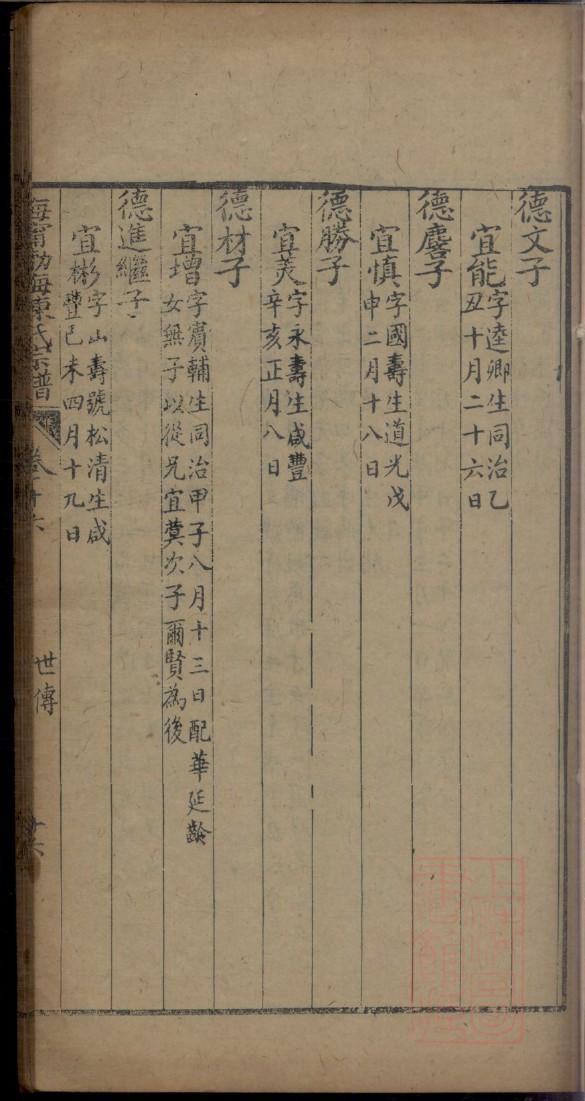 德文子
宜能字逵卿生同治乙
丑十月二十六日
德麐子
宜慎字國壽生道光戊
申二月十八日
德勝子
宜美字永壽生咸豐
辛亥正月八日
德材子
宜增字賡輔生同治甲子八月十三日配華延齡
女無子以從兄宜蓂次子爾賢為後
德進繼子
宜彬字山壽號松清生咸
豐己未四月十九日
海甯渤海陳氏宗譜
世傳